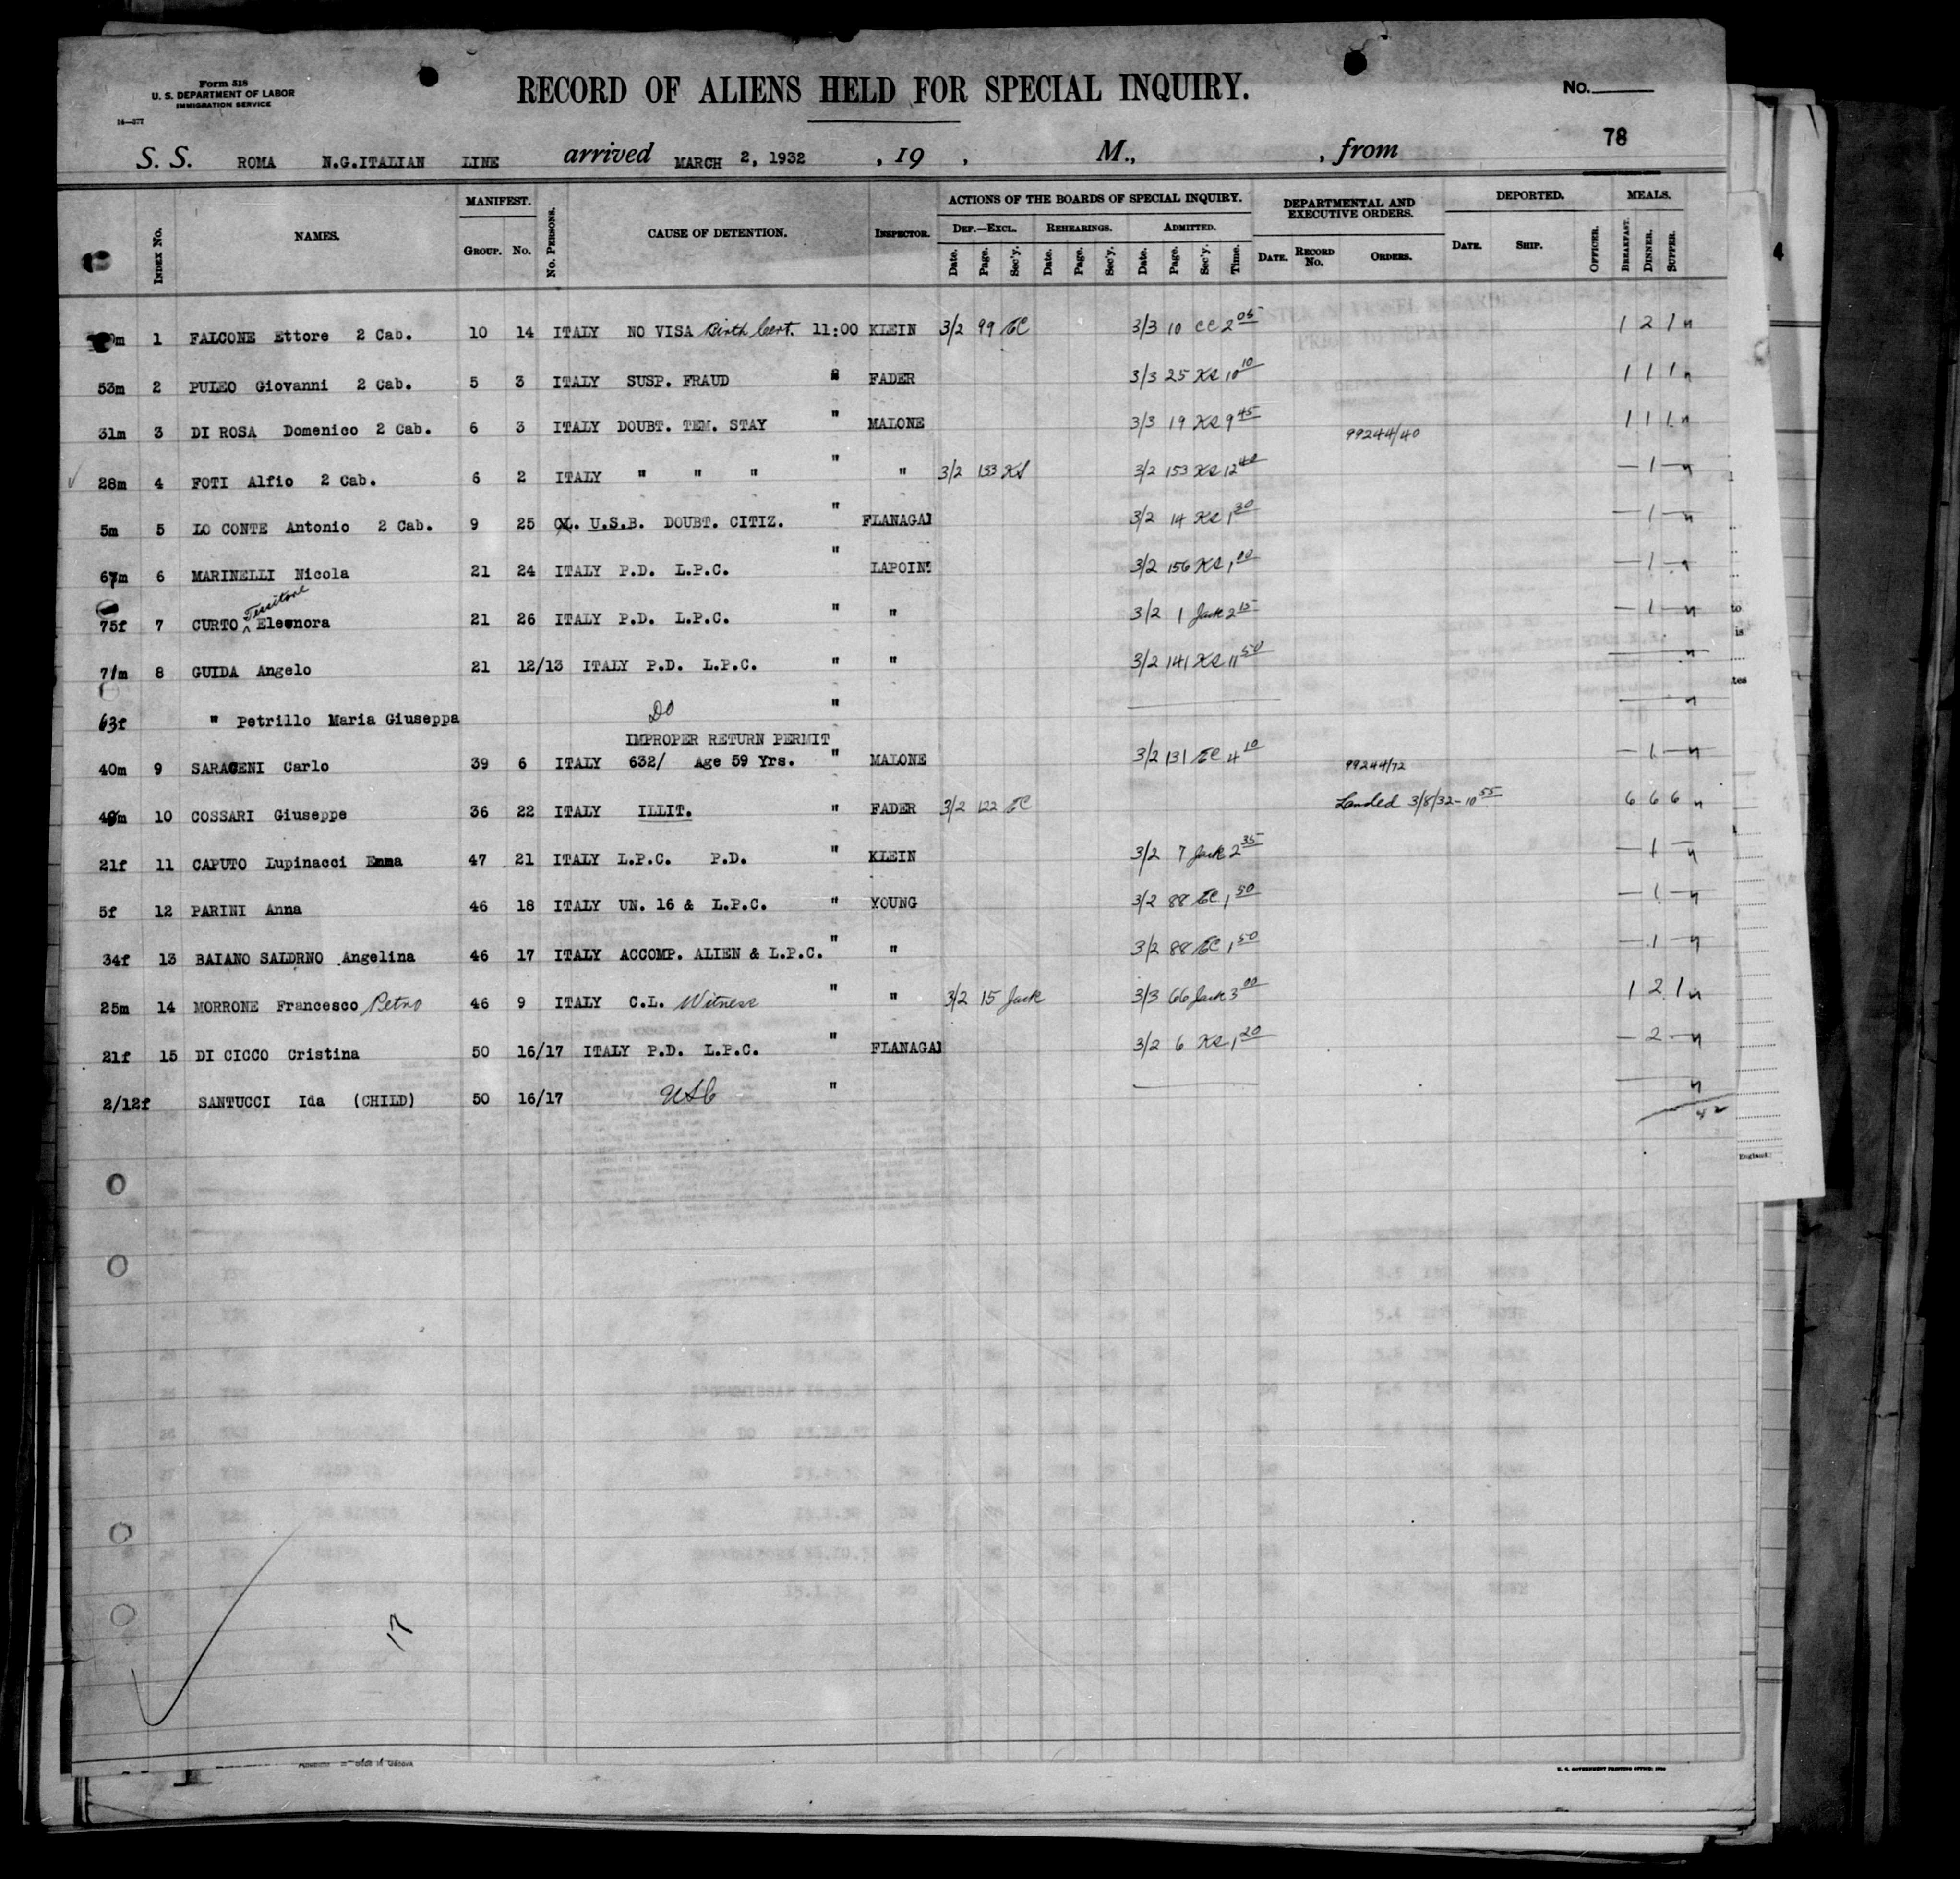 Form 518
U. S. DEPARTMENT OF LABOR
IMMIGRATION SERVICE
14—277
RECORD OF ALIENS HELD FOR SPECIAL INQUIRY.
No.
78
S. S. ROMA N.G.ITALIAN LINE arrived MARCH 2, 1932 , 19 , M., , from
INDEX No. NAMES. MANIFEST. GROUP. No. No. PERSONS. CAUSE OF DETENTION. INSPECTOR. ACTIONS OF THE BOARDS OF SPECIAL INQUIRY. DEF.—EXCL. Date. Page. Sec'y. REHEARINGS. Date. Page. Sec'y. ADMITTED. Date. Page. Sec'y. Time. DEPARTMENTAL AND EXECUTIVE ORDERS. DATE. RECORD No. ORDERS. DEPORTED. DATE. SHIP. OFFICER. MEALS. BREAKFAST. DINNER. SUPPER.
m 1 FALCONE Ettore 2 Cab. 10 14 ITALY NO VISA Birth Cert. 11:00 KLEIN 3/2 99 EC 3/3 10 CC 2 05 1 2 1 n
53m 2 PULEO Giovanni 2 Cab. 5 3 ITALY SUSP. FRAUD " FADER 3/3 25 KS 10 10 1 1 1 n
31m 3 DI ROSA Domenico 2 Cab. 6 3 ITALY DOUBT. TEM. STAY " MALONE 3/3 19 KS 9 45 99244/40 1 1 1 n
28m 4 FOTI Alfio 2 Cab. 6 2 ITALY " " " " " 3/2 153 KS 3/2 153 KS 12 40 — 1 — n
5m 5 LO CONTE Antonio 2 Cab. 9 25 CL. U.S.B. DOUBT. CITIZ. " FLANAGAN 3/2 14 KS 1 30 — 1 — n
67m 6 MARINELLI Nicola 21 24 ITALY P.D. L.P.C. " LAPOINT 3/2 156 KS 1 00 — 1 — n
75f 7 CURTO Eleonora 21 26 ITALY P.D. L.P.C. " " 3/2 1 Jack 2 15 — 1 — n
71m 8 GUIDA Angelo 21 12/13 ITALY P.D. L.P.C. " " 3/2 141 KS 11 50 — n
63f " Petrillo Maria Giuseppa DO " — — n
IMPROPER RETURN PERMIT
40m 9 SARACENI Carlo 39 6 ITALY 632/ Age 59 Yrs. " MALONE 3/2 131 EC 4 10 99244/72 — 1 — n
49m 10 COSSARI Giuseppe 36 22 ITALY ILLIT. " FADER 3/2 122 EC Landed 3/8/32 - 10 55 6 6 6 n
21f 11 CAPUTO Lupinacci Emma 47 21 ITALY L.P.C. P.D. " KLEIN 3/2 7 Jack 2 35 — 1 — n
5f 12 PARINI Anna 46 18 ITALY UN. 16 & L.P.C. " YOUNG 3/2 88 EC 1 50 — 1 — n
34f 13 BAIANO SALDRNO Angelina 46 17 ITALY ACCOMP. ALIEN & L.P.C. " " 3/2 88 EC 1 50 — 1 — n
25m 14 MORRONE Francesco Petro 46 9 ITALY C.L. Witness " " 3/2 15 Jack 3/3 66 Jack 3 00 1 2 1 n
21f 15 DI CICCO Cristina 50 16/17 ITALY P.D. L.P.C. " FLANAGAN 3/2 6 KS 1 20 — 2 — n
2/12f SANTUCCI Ida (CHILD) 50 16/17 USC " — — n
42
17
4
to
is
tes
England
U. S. GOVERNMENT PRINTING OFFICE